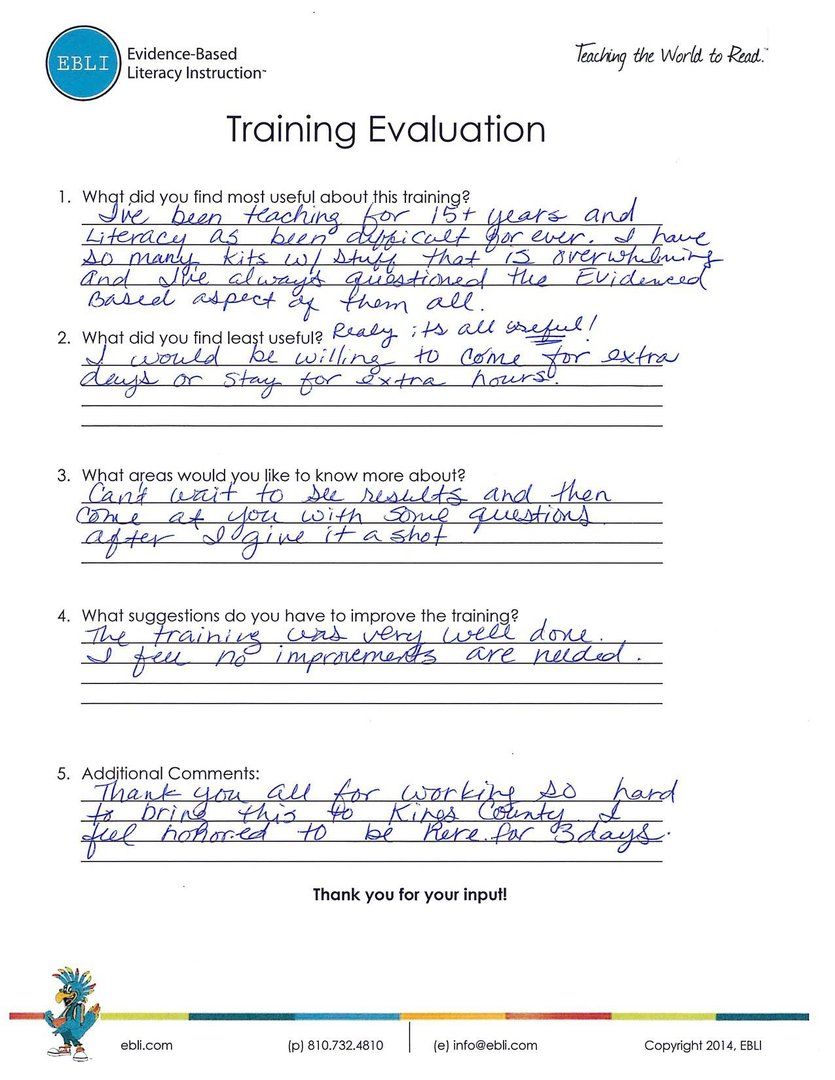 EBLI
Evidence-Based
Literacy Instruction™
Teaching the World to Read.™
Training Evaluation
1. What did you find most useful about this training?
I've been teaching for 15+ years and
Literacy as been difficult for ever. I have
so many kits w/ stuff that is overwhelming
and I've always questioned the Evidenced
Based aspect of them all.
2. What did you find least useful? Realy its all useful!
I would be willing to come for extra
days or stay for extra hours.
3. What areas would you like to know more about?
Can't wait to see results and then
come at you with some questions
after I give it a shot
4. What suggestions do you have to improve the training?
The training was very well done.
I feel no improvements are needed.
5. Additional Comments:
Thank you all for working so hard
to bring this to Kings County. I
feel honored to be here for 3 days.
Thank you for your input!
ebli.com (p) 810.732.4810 (e) info@ebli.com Copyright 2014, EBLI